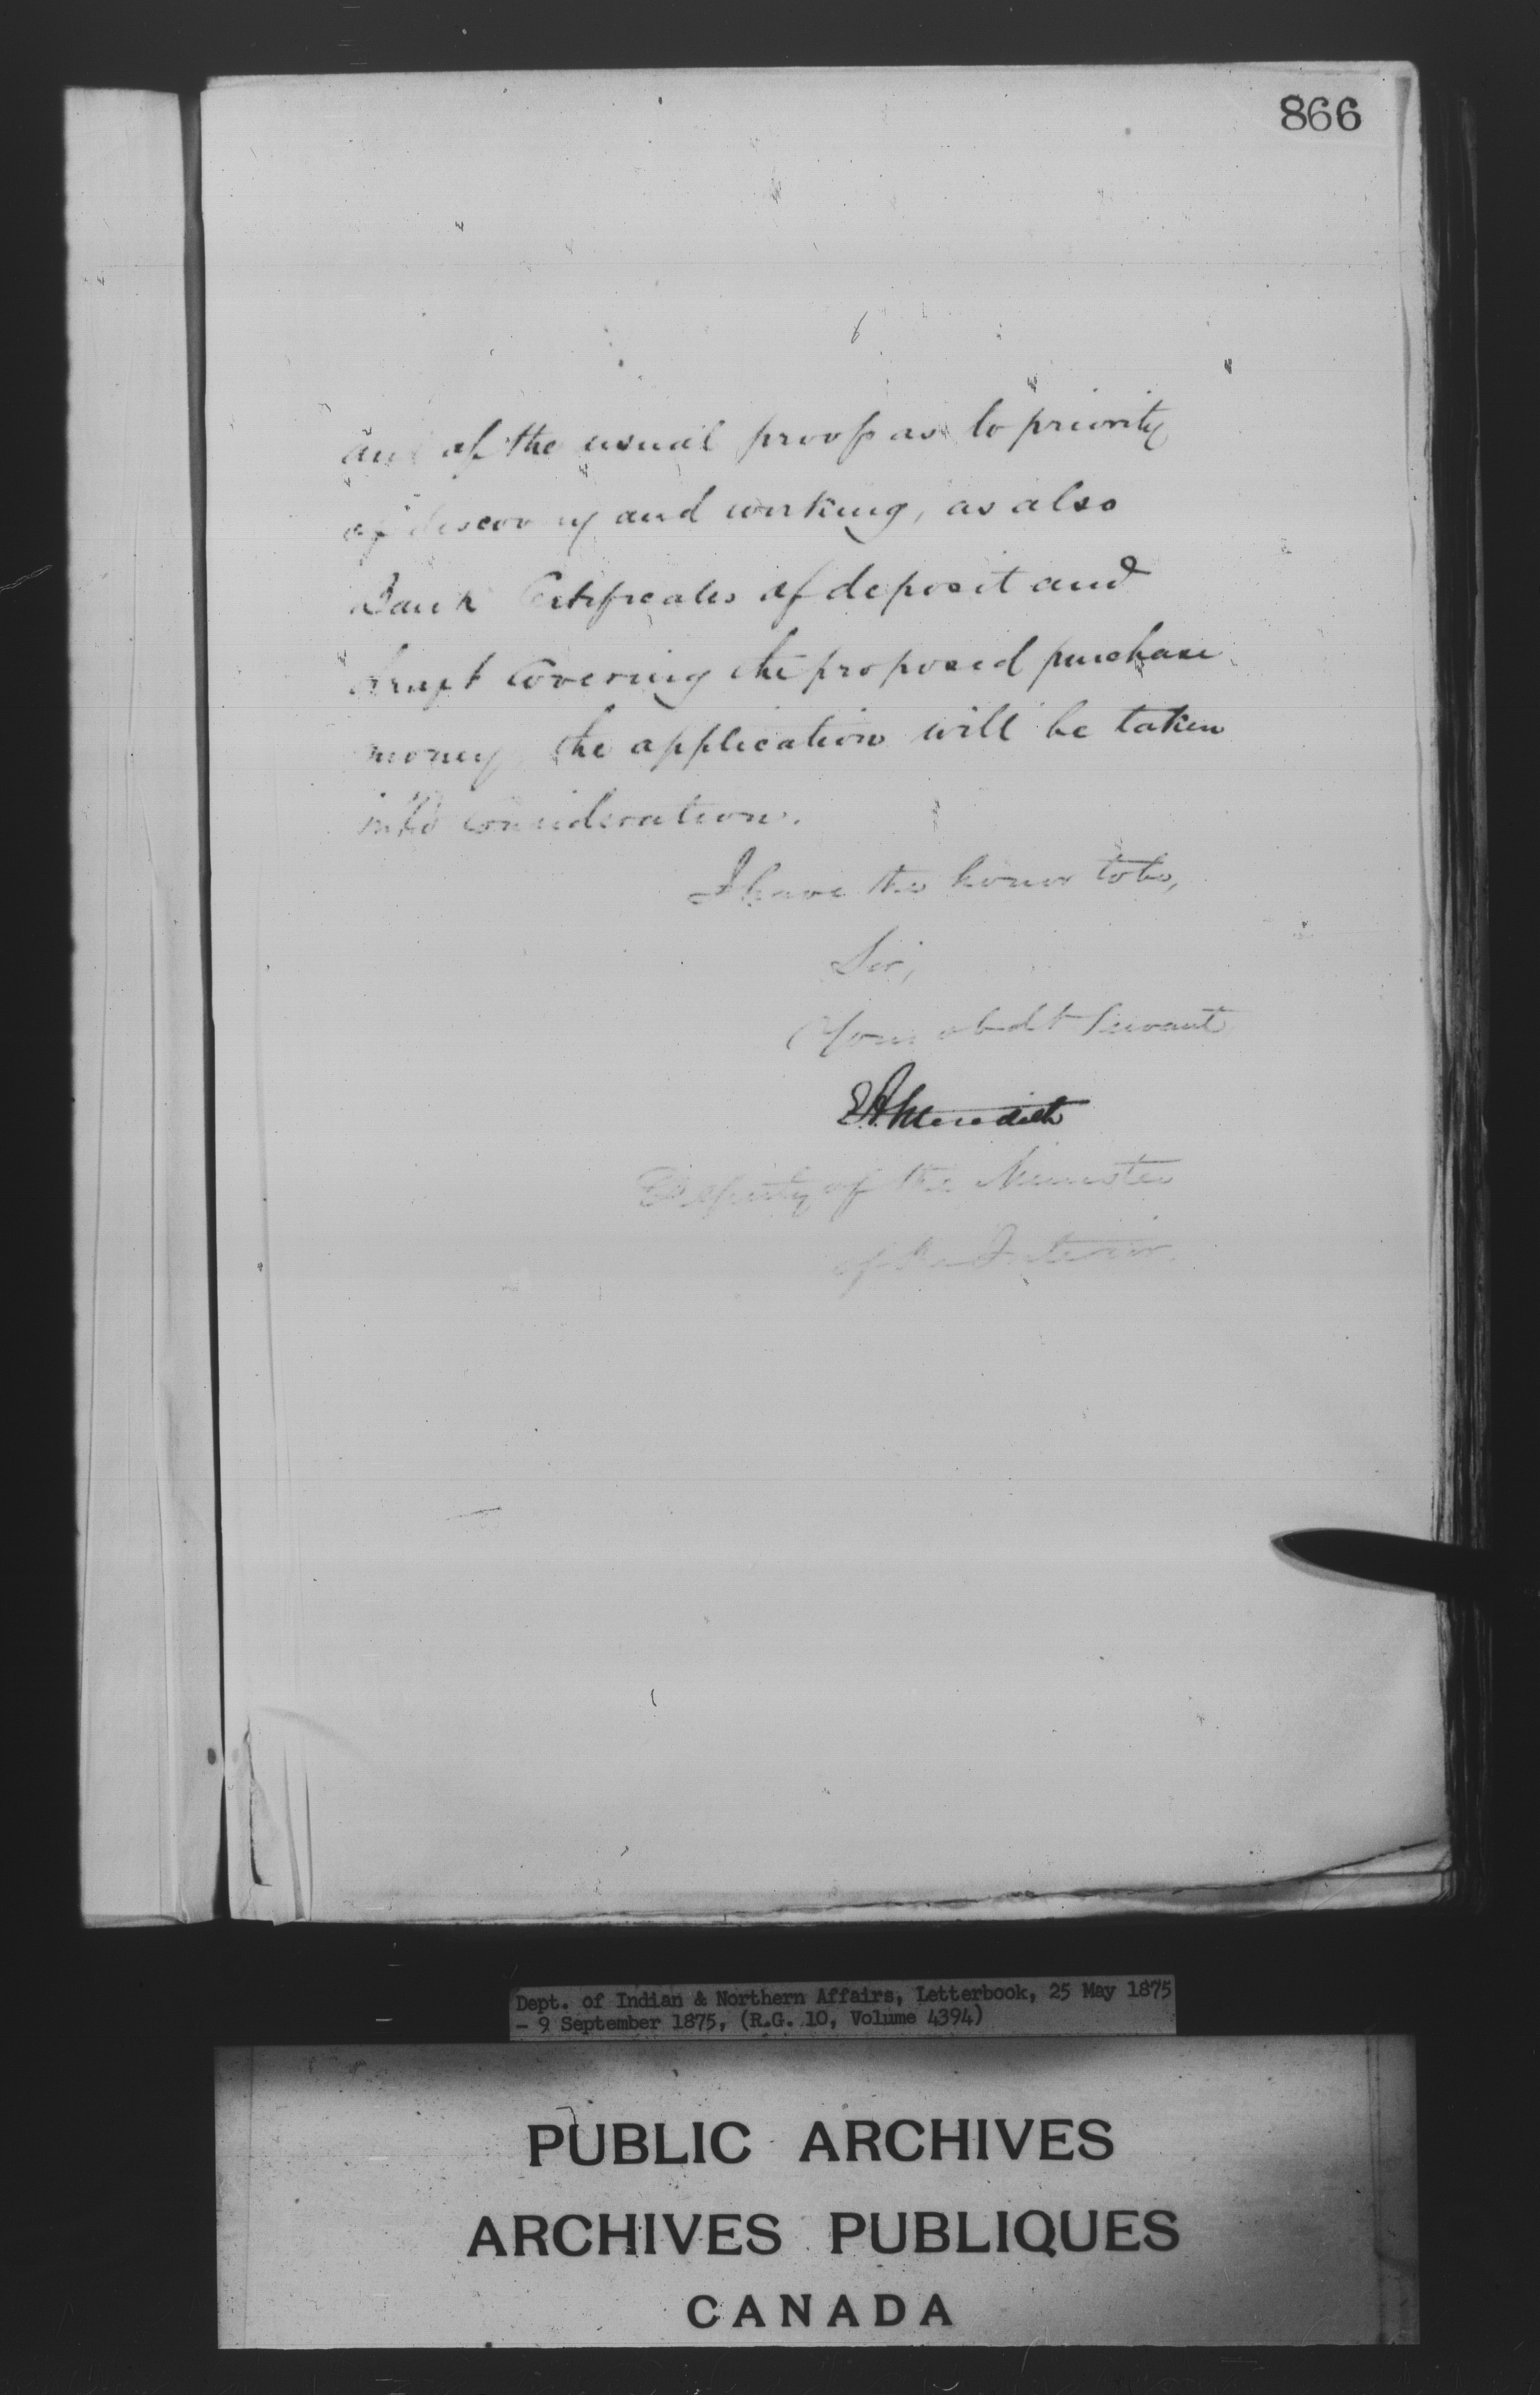 866
and of the usual proofs as to priority
of discovery and working, as also
Bank Certificates of deposit and
draft covering the proposed purchase
money, the application will be taken
into consideration.
I have the honor to be,
Sir,
Your obdt Servant
E A Meredith
Deputy of the Minister
of the Interior.
Dept. of Indian & Northern Affairs, Letterbook, 25 May 1875
- 9 September 1875, (R.G. 10, Volume 4394)
PUBLIC ARCHIVES
ARCHIVES PUBLIQUES
CANADA